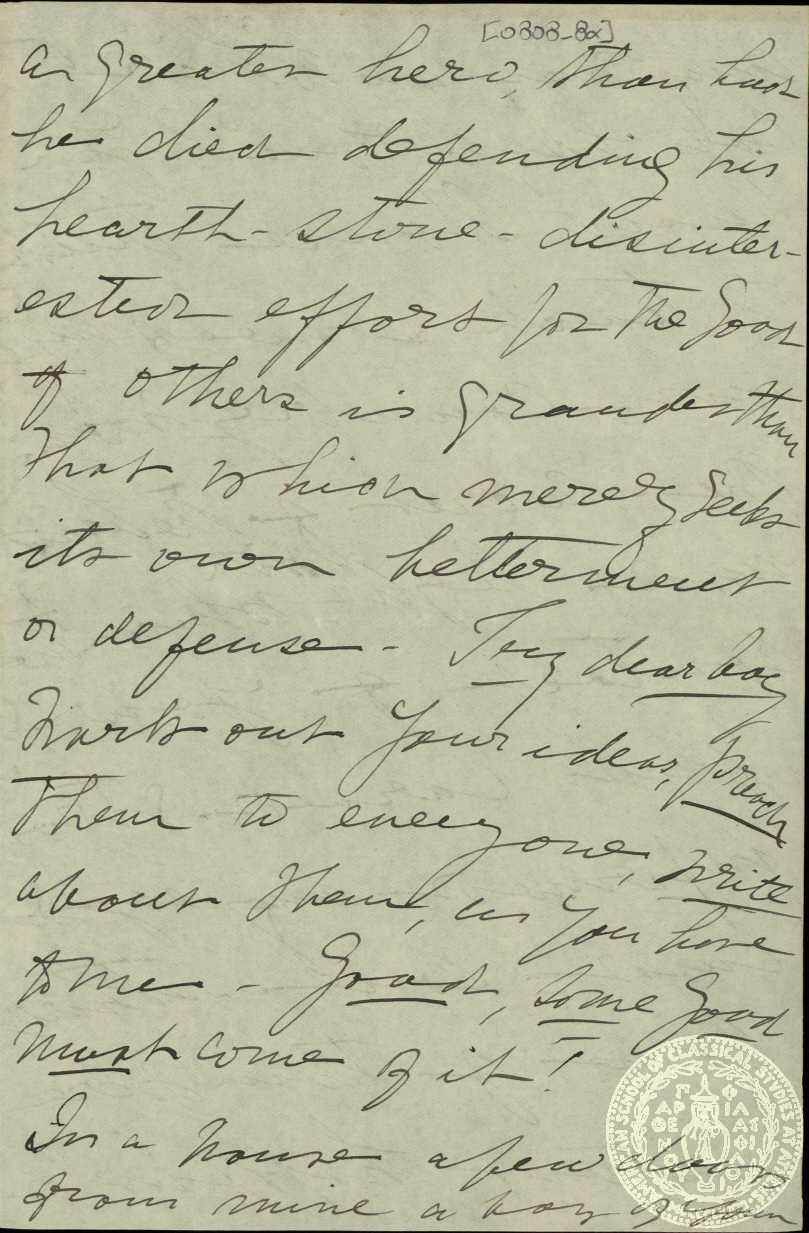 [0808-8α]
a greater hero, than had
he died defending his
hearth-stone - disinter-
ested effort for the good
of others is grander than
that which merely seeks
its own betterment
or defense - Try dear boy
work out your ideas, preach
them to everyone, write
about them, as you have
to me - Good, some good
must come of it!
In a house a few doors
from mine a boy of your
AMERICAN SCHOOL OF CLASSICAL STUDIES AT ATHENS
ΠΑΡΘΕΝΟΥ ΦΙΛΑΣ ΦΙΛΟΙ